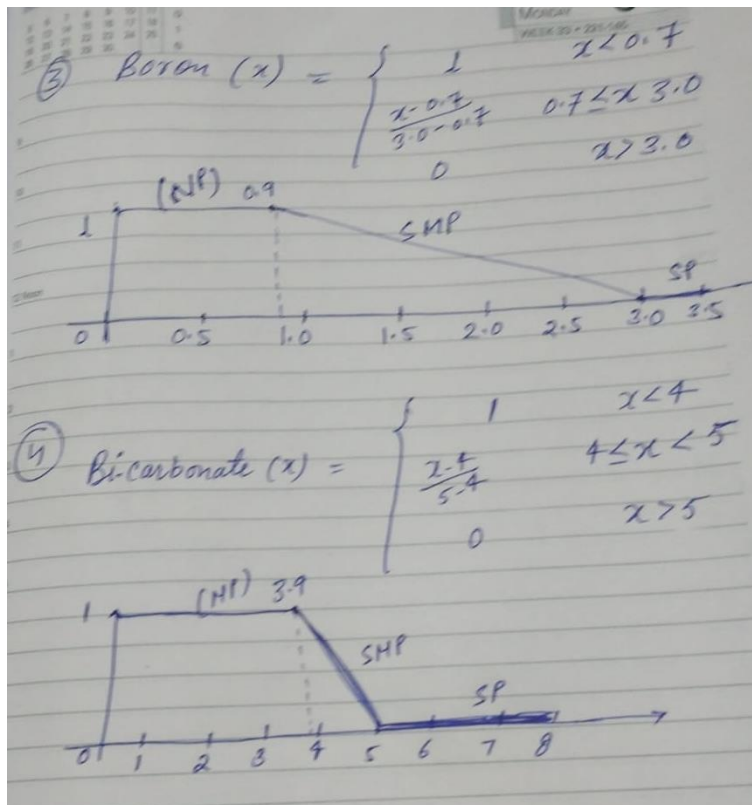 MONDAY
③ Boron (x) = { 1 x<0.7
x-0.7 / 3.0-0.7 0.7≤x 3.0
0 x>3.0
(NP) 0.9
1
SMP
SP
0 0.5 1.0 1.5 2.0 2.5 3.0 3.5
④ Bi-carbonate (x) = { 1 x<4
x-4 / 5-4 4≤x<5
0 x>5
(NP) 3.9
1
SMP
SP
0 1 2 3 4 5 6 7 8